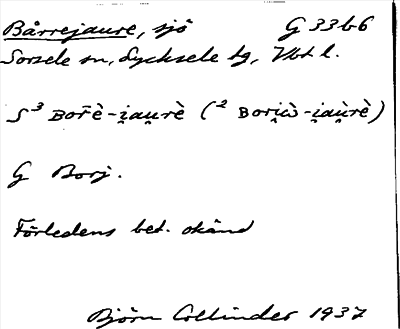 Bårrejaure, sjö G 33 b 6
Sorsele sn, Lycksele tg, Vbt l.
S³ Bor̄è-i̯au̯rè (² Bori̯ὼ-i̯au̯rè)
G Borj.
Förledens bet. okänd
Björn Collinder 1937